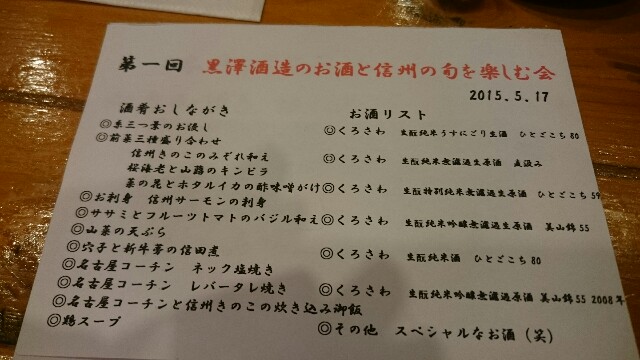 第一回 黒澤酒造のお酒と信州の旬を楽しむ会
2015.5.17
酒肴おしながき
◎糸三つ葉のお浸し
◎前菜三種盛り合わせ
信州きのこのみぞれ和え
桜海老と山蕗のキンピラ
菜の花とホタルイカの酢味噌がけ
◎お刺身 信州サーモンの刺身
◎ササミとフルーツトマトのバジル和え
◎山菜の天ぷら
◎穴子と新牛蒡の信田煮
◎名古屋コーチン ネック塩焼き
◎名古屋コーチン レバータレ焼き
◎名古屋コーチンと信州きのこの炊き込み御飯
◎鶏スープ
お酒リスト
◎くろさわ 生酛純米うすにごり生酒 ひとごこち80
◎くろさわ 生酛純米無濾過生原酒 直汲み
◎くろさわ 生酛特別純米無濾過生原酒 ひとごこち59
◎くろさわ 生酛純米吟醸無濾過生原酒 美山錦55
◎くろさわ 生酛純米酒 ひとごこち80
◎くろさわ 生酛純米吟醸無濾過原酒 美山錦55 2008年
◎その他 スペシャルなお酒(笑)